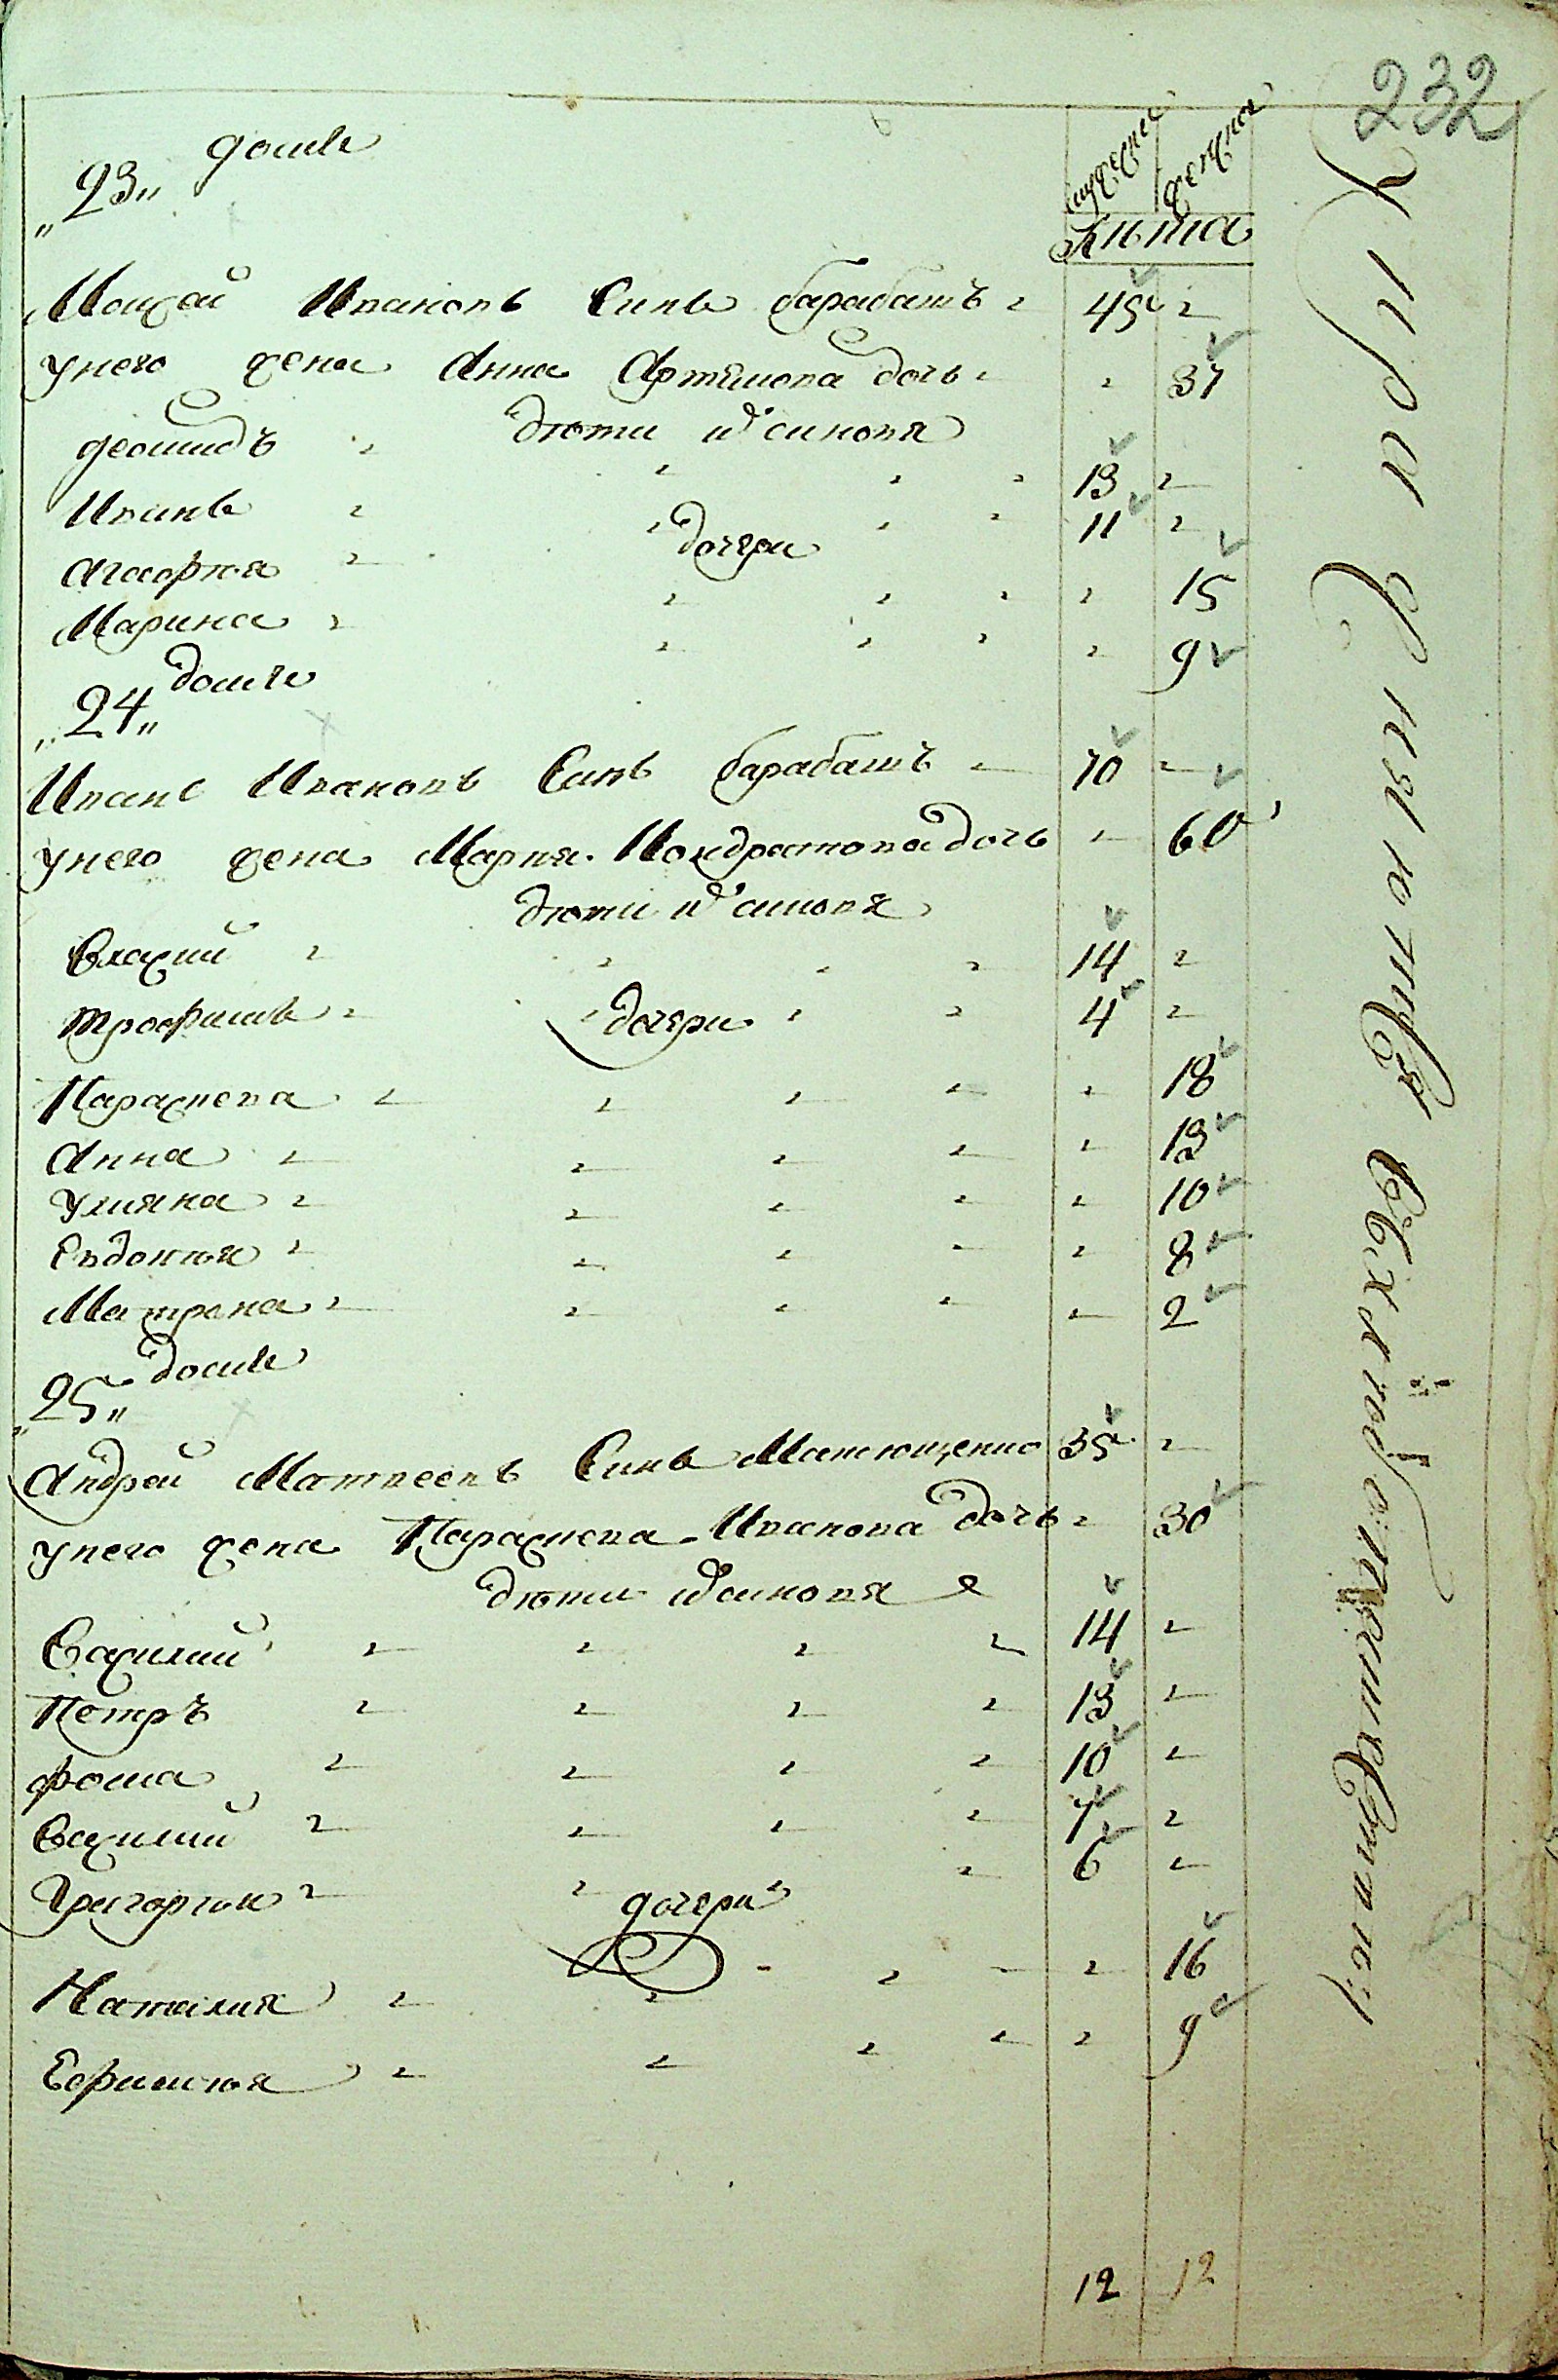 232
домъ
„23„
мужеска
женска
лѣта
Мощай Ивановъ Синъ барабашъ 45
унего жена Анна Артемова дочь 37
дѣти ихъ синовя
Леонидъ 13
Иванъ 11
дочери
Агафия 15
Марина 9
домъ
„24„
Иванъ Ивановъ Синъ барабашъ 70
унего жена Мария Кондратова дочь 60
дѣти ихъ синовя
Власий 14
трофимъ 4
дочери
Параскева 18
Анна 13
улияна 10
Евдокия 8
Матрена 2
домъ
„25„
Андрей Матвеевъ Синъ Матющенко 35
унего жена Параскева Иванова дочь 30
дѣти ихъ синовя
Василий 14
Петръ 13
фома 10
Василий 7
Григорий 6
дочери
Наталия 16
Ефимия 9
12 12